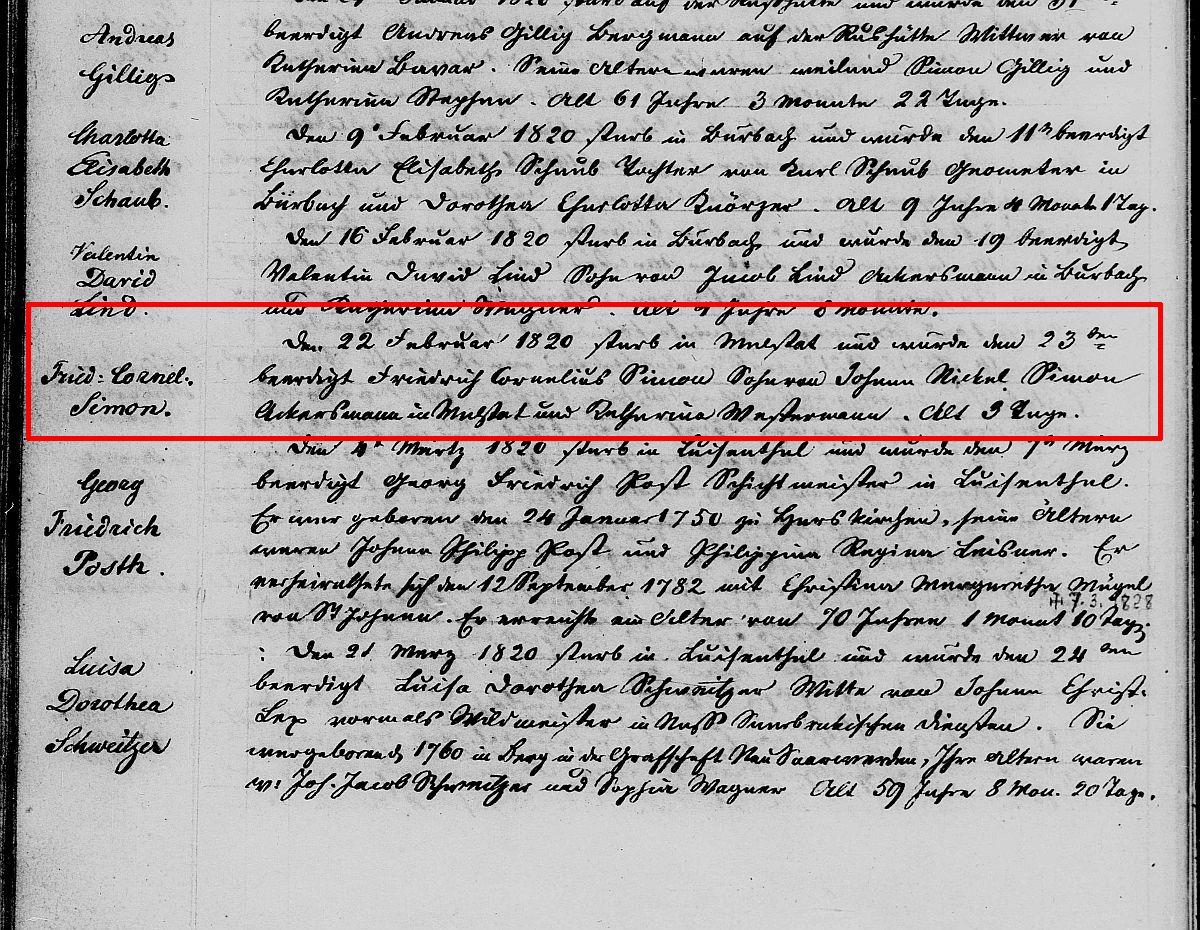 beerdigt Andreas Gillig Bergmann auf der Rushütte Wittwer von
Katharina Bavar. Seine Altern waren weiland Simon Gillig und
Katharina Stephan. Alt 61 Jahre 3 Monate 22 Tage.
Andreas
Gillig
Den 9 Februar 1820 starb in Burbach und wurde den 11ten beerdigt
Charlotta Elisabeth Schaub Tochter von Karl Schaub Geometer in
Burbach und Dorothea Charlotta Knörzer. Alt 9 Jahre 4 Monate 1 Tag.
Charlotta
Elisabeth
Schaub.
Den 16 Februar 1820 starb in Burbach und wurde den 19 beerdigt
Valentin David Lind Sohn von Jacob Lind Ackersmann in Burbach
und Katharina Wagner. Alt Jahre 8 Monate.
Valentin
David
Lind.
Den 22 Februar 1820 starb in Malstat und wurde den 23 ten
beerdigt Friedrich Cornelius Simon Sohn von Johann Nickel Simon
Ackersmann in Malstat und Katharina Westermann. Alt 3 Tage.
Fried: Cornel:
Simon.
Den 4 Mertz 1820 starb in Luisenthal und wurde den 7 Merz
beerdigt Georg Friedrich Post Schichtmeister in Luisenthal.
Er war geboren den 24 Januar 1750 zu Harskirchen, seine Ältern
waren Johann Philipp Post und Philippina Regina Leisner. Er
verheirathete sich den 12 September 1782 mit Christina Margaretha Mügel
von St Johann. Er erreichte ein Alter von 70 Jahren 1 Monat 10 Tage.
7.3.1828
Georg
Friedrich
Posth.
Den 21 Merz 1820 starb in Luisenthal und wurde den 24 ten
beerdigt Luisa Dorothea Schweitzer Witte von Johann Christ:
Lex vormals Wildmeister in Nass Saarbrükischen diensten. Sie
war geboren d 1760 in Berg in der Grafschaft Neu Saarwerden, Ihre Altern waren
v: Joh. Jacob Schweitzer und Sophia Wagner Alt 59 Jahre 8 Mon. 20 Tage.
Luisa
Dorothea
Schweitzer